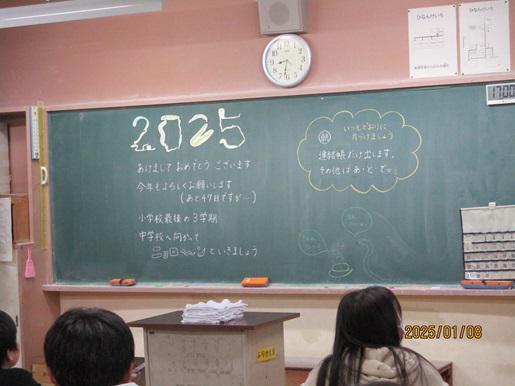 2025
あけまして おめでとう ございます
今年もよろしくお願いします
(あと47日ですが…)
小学校最後の3学期
中学校へ向かって
といきましょう
いつもどおりに
片づけましょう
連絡帳だけ出します。
その他はあ・と・で。
ひなんけいろ
ひなんけいろ
1700
2025/01/08